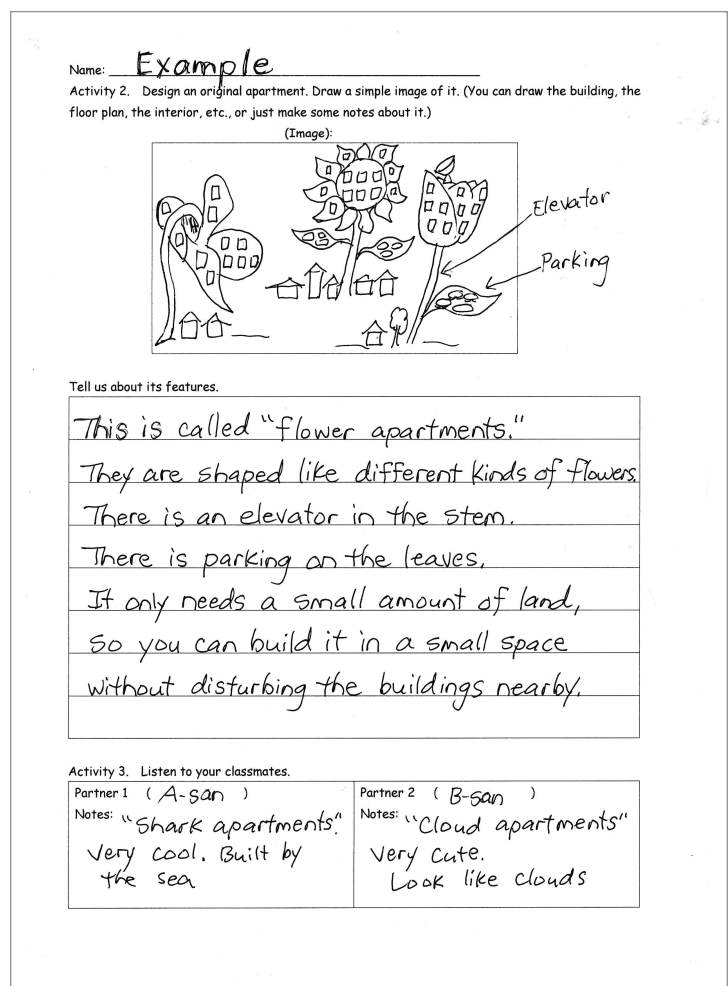 Name: Example
Activity 2. Design an original apartment. Draw a simple image of it. (You can draw the building, the
floor plan, the interior, etc., or just make some notes about it.)
(Image):
Elevator
Parking
Tell us about its features.
This is called "flower apartments."
They are shaped like different kinds of flowers.
There is an elevator in the stem.
There is parking on the leaves.
It only needs a small amount of land,
so you can build it in a small space
without disturbing the buildings nearby.
Activity 3. Listen to your classmates.
Partner 1 ( A-san )
Notes: "Shark apartments".
Very cool. Built by
the sea
Partner 2 ( B-san )
Notes: "Cloud apartments"
Very cute.
Look like clouds